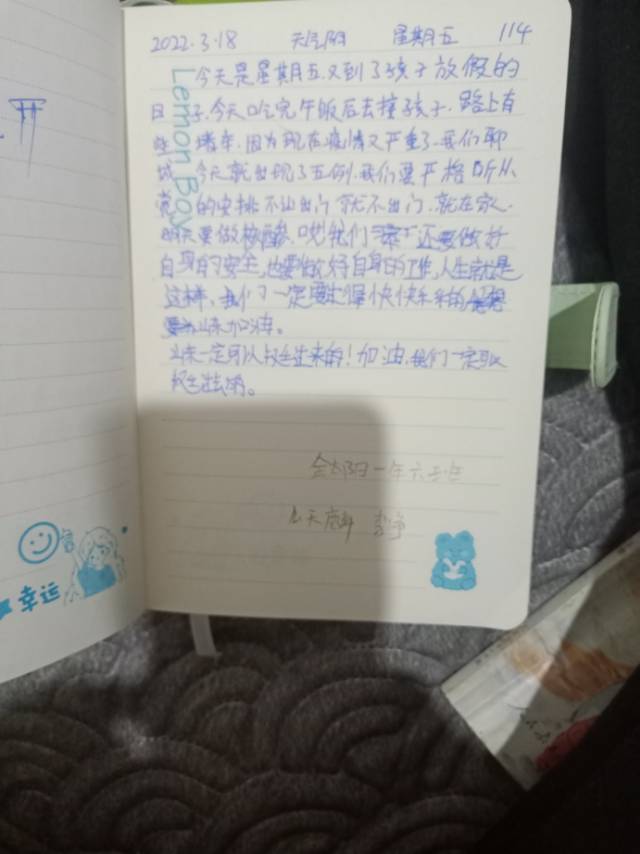 2022.3.18 天气阴 星期五 114
今天是星期五又到了孩子放假的
日子.今天吃完午饭后去接孩子.路上有
些堵车.因为现在疫情又严重了.我们聊
城今天就出现了五例.我们要严格听从
党的安排不让出门就不出门.就在家.
明天要做核酸.我们还要做好
自身的安全,也要做好自身的工作,人生就是
这样.我们一定要过得快快乐乐的
山东加油。
山东一定可以好起来的!加油.我们一定可以
Lemon Boy
一年六班
幸运